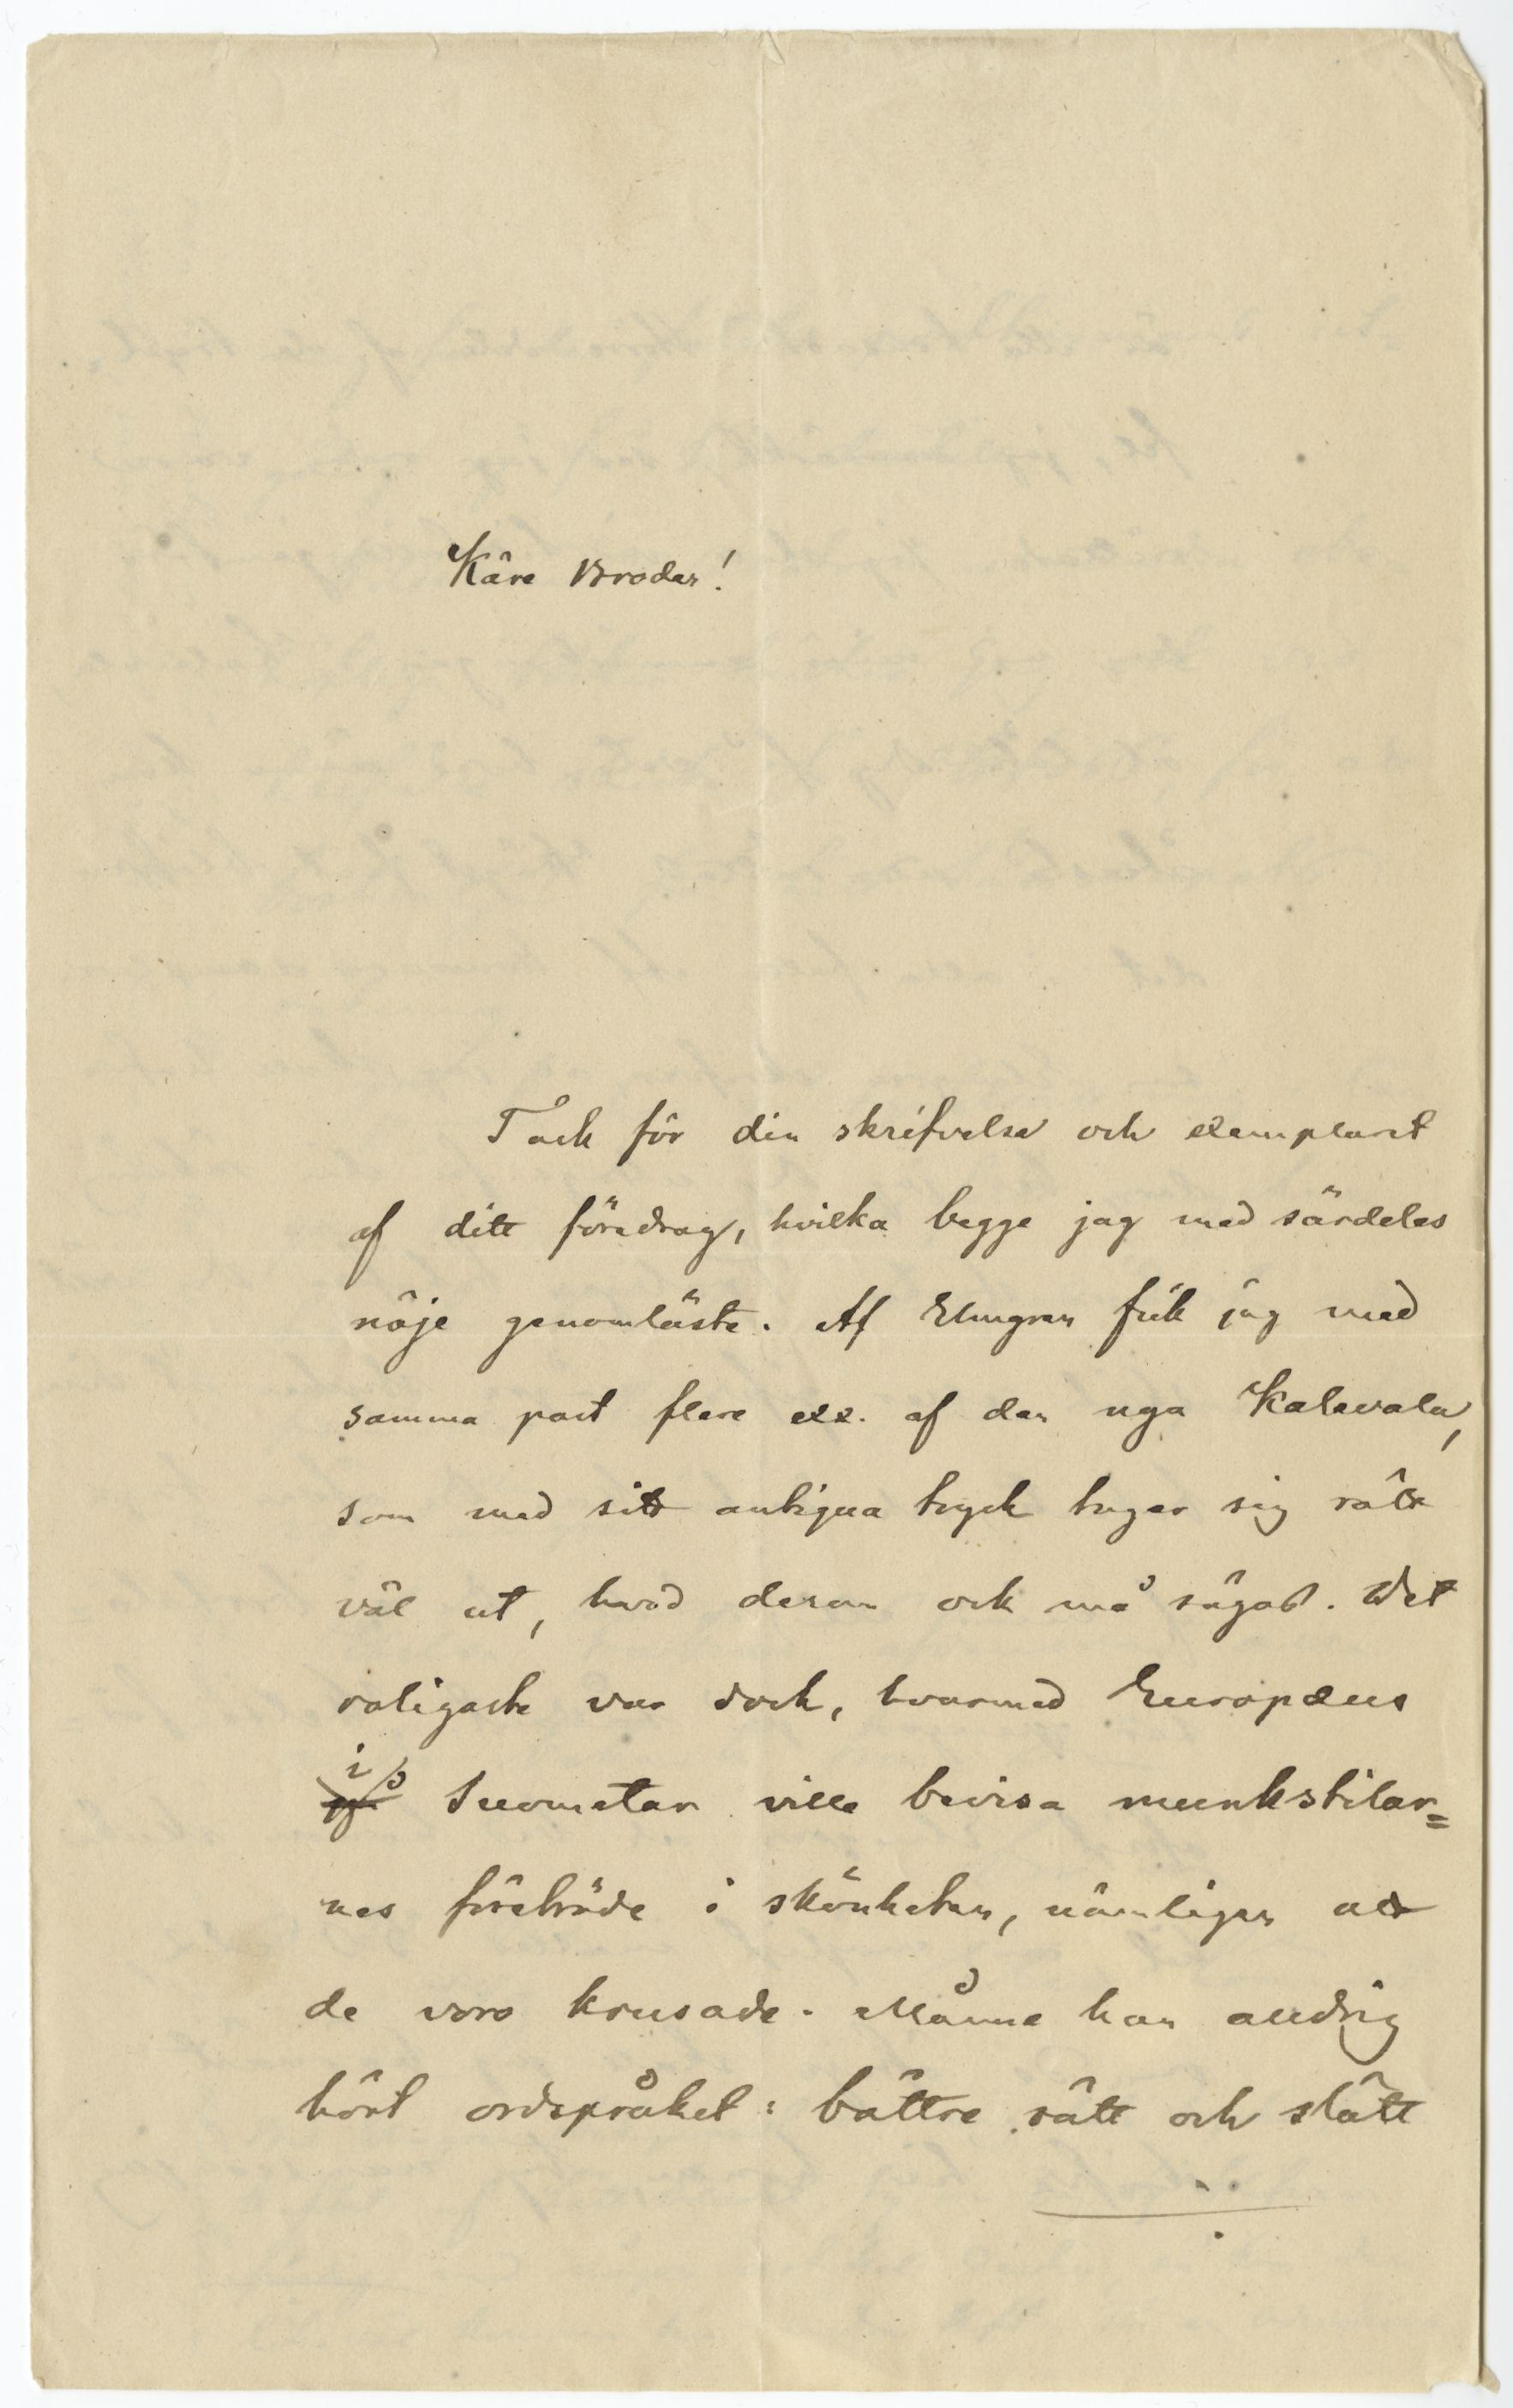 Käre Broder!
Tack för din skrifvelse och exemplaret
af ditt föredrag, hvilka begge jag med särdeles
nöje genomläste. Af Elmgren fick jag med
samma post flere exx. af den nya Kalevala,
som med sitt antiqua tryck tager sig rätt
väl ut, hvad derom ock må sägas. Det
roligaste var dock, hvarmed Europæus
i Suometar ville bevisa munkstilar=
nes företräde i skönheten, nämligen att
de voro krusade. Månne han aldrig
hört ordspråket: bättre rätt och slätt